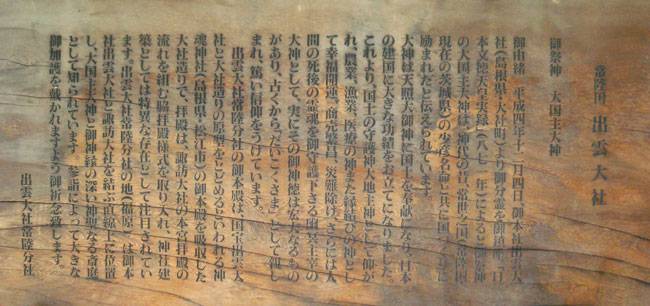 常陸国 出雲大社
御祭神 大国主大神
御由緒 平成四年十二月四日、御本社出雲大
社(島根県・大社町)より御分霊を御鎮座。「日
本文徳天皇実録」(八七一年)によると御祭神
の大国主大神は、神代の昔、常陸之国(常陸国
現在の茨城県)の少彦名命と共に国づくりに
励まれたと伝えられています。
大神は天照大御神に国土を奉献になり、日本
の建国に大きな功績をお立てになりました。
これより、国土の守護神大地主神として仰が
れ、農業、漁業、医薬の神また縁結びの神とし
て幸福開運、商売繁昌、災難除け、さらには人
間の死後の霊魂を御守護下さる幽冥主宰の
大神として、実にその御神徳は広大なるもの
があり、古くから「だいこくさま」として親し
まれ、篤い信仰をうけています。
出雲大社常陸分社の御本殿は、国宝出雲大
社と大社造りの原型をとどめるといわれる神
魂神社(島根県・松江市)の御本殿を吸収した
大社造りで、拝殿は、諏訪大社の本宮拝殿の
流れを組む脇拝殿様式を取り入れ、神社建
築としては特異な存在として注目されてい
ます。出雲大社常陸分社の地(福原)は御本
社出雲大社と諏訪大社を結ぶ直線上に位置
し、大国主大神と御神縁の深い神聖なる斎庭
として知られています。参詣によって大きな
御加護を戴かれますよう御祈念致します。
出雲大社常陸分社